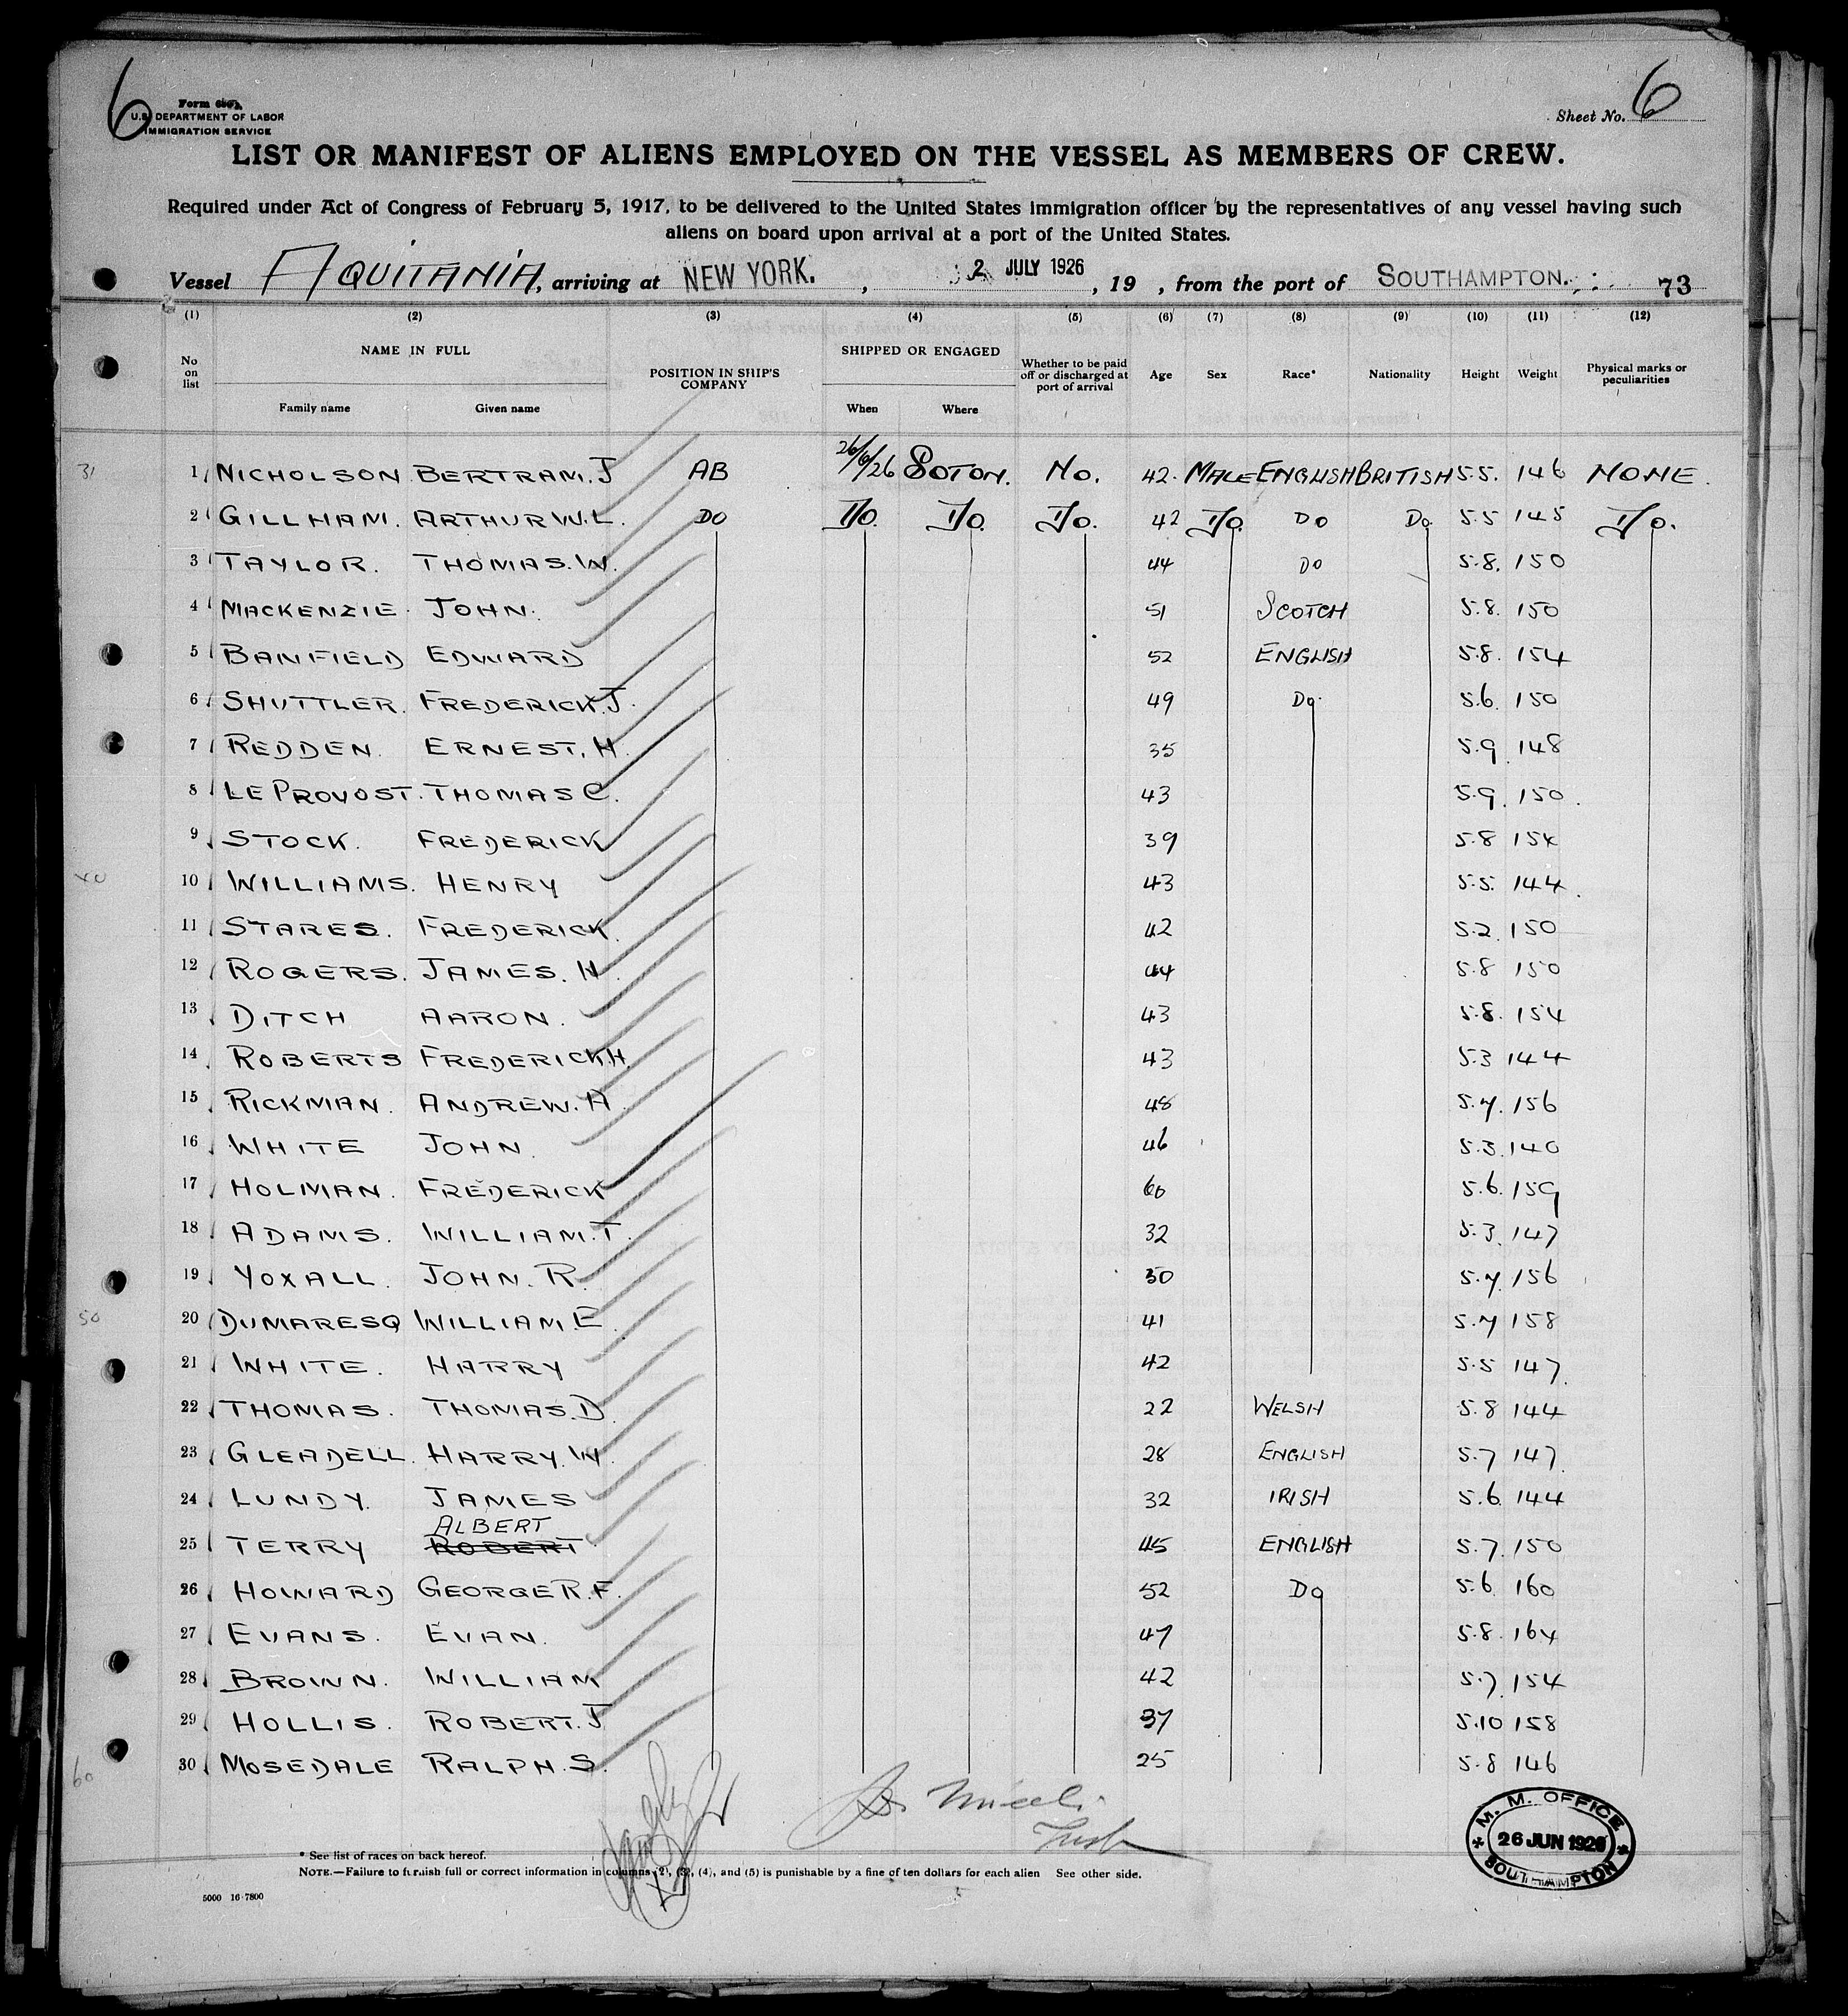 6
Form 680
U.S. DEPARTMENT OF LABOR
IMMIGRATION SERVICE
Sheet No. 6
LIST OR MANIFEST OF ALIENS EMPLOYED ON THE VESSEL AS MEMBERS OF CREW.
Required under Act of Congress of February 5, 1917, to be delivered to the United States immigration officer by the representatives of any vessel having such
aliens on board upon arrival at a port of the United States.
Vessel AQUITANIA, arriving at NEW YORK. , 2 JULY 1926 , 19 , from the port of SOUTHAMPTON. 73
(1) (2) (3) (4) (5) (6) (7) (8) (9) (10) (11) (12)
No on list NAME IN FULL POSITION IN SHIP'S COMPANY SHIPPED OR ENGAGED Whether to be paid off or discharged at port of arrival Age Sex Race* Nationality Height Weight Physical marks or peculiarities
Family name Given name When Where
31 1 NICHOLSON BERTRAM. J AB 26/6/26 SOTON. No. 42. MALE ENGLISH BRITISH 5.5. 146 NONE.
2 GILLHAM. ARTHUR W.L. DO Do. Do. Do. 42 Do. Do Do 5.5 145 Do.
3 TAYLOR. THOMAS. W. 44 Do 5.8. 150
4 MACKENZIE. JOHN. 51 SCOTCH 5.8. 150
5 BANFIELD EDWARD 52 ENGLISH 5.8. 154
6 SHUTTLER. FREDERICK. J. 49 Do. 5.6. 150
7 REDDEN. ERNEST. H. 35 5.9. 148
8 LE PROVOST. THOMAS C. 43 5.9. 150.
9 STOCK. FREDERICK 39 5.8 154
40 10 WILLIAMS. HENRY 43 5.5. 144.
11 STARES. FREDERICK. 42 5.2. 150
12 ROGERS. JAMES. H. 44 5.8 150
13 DITCH AARON. 43 5.8. 154
14 ROBERTS FREDERICK H. 43 5.3 144
15 RICKMAN. ANDREW. A. 48 5.7. 156
16 WHITE JOHN. 46 5.3. 140
17 HOLMAN. FREDERICK 60 5.6. 159
18 ADAMS. WILLIAM. T. 32 5.3. 147
19 YOXALL. JOHN. R. 30 5.7. 156
50 20 DUMARESQ WILLIAM. E. 41 5.7 158
21 WHITE. HARRY 42 5.5 147.
22 THOMAS. THOMAS. D. 22 WELSH 5.8 144
23 GLEADELL. HARRY. W. 28 ENGLISH 5.7 147.
24 LUNDY. JAMES 32 IRISH 5.6. 144
ALBERT
25 TERRY ROBERT 45 ENGLISH 5.7. 150
26 HOWARD GEORGE R. F. 52 Do 5.6. 160
27 EVANS. EVAN. 47 5.8. 164
28 BROWN. WILLIAM 42 5.7. 154
29 HOLLIS. ROBERT. J 37 5.10 158
60 30 MOSEDALE RALPH. S. 25 5.8 146
M. M. OFFICE
26 JUN 1926
SOUTHAMPTON
* See list of races on back hereof.
NOTE.—Failure to furnish full or correct information in columns (2), (3), (4), and (5) is punishable by a fine of ten dollars for each alien See other side.
5000 16-7800